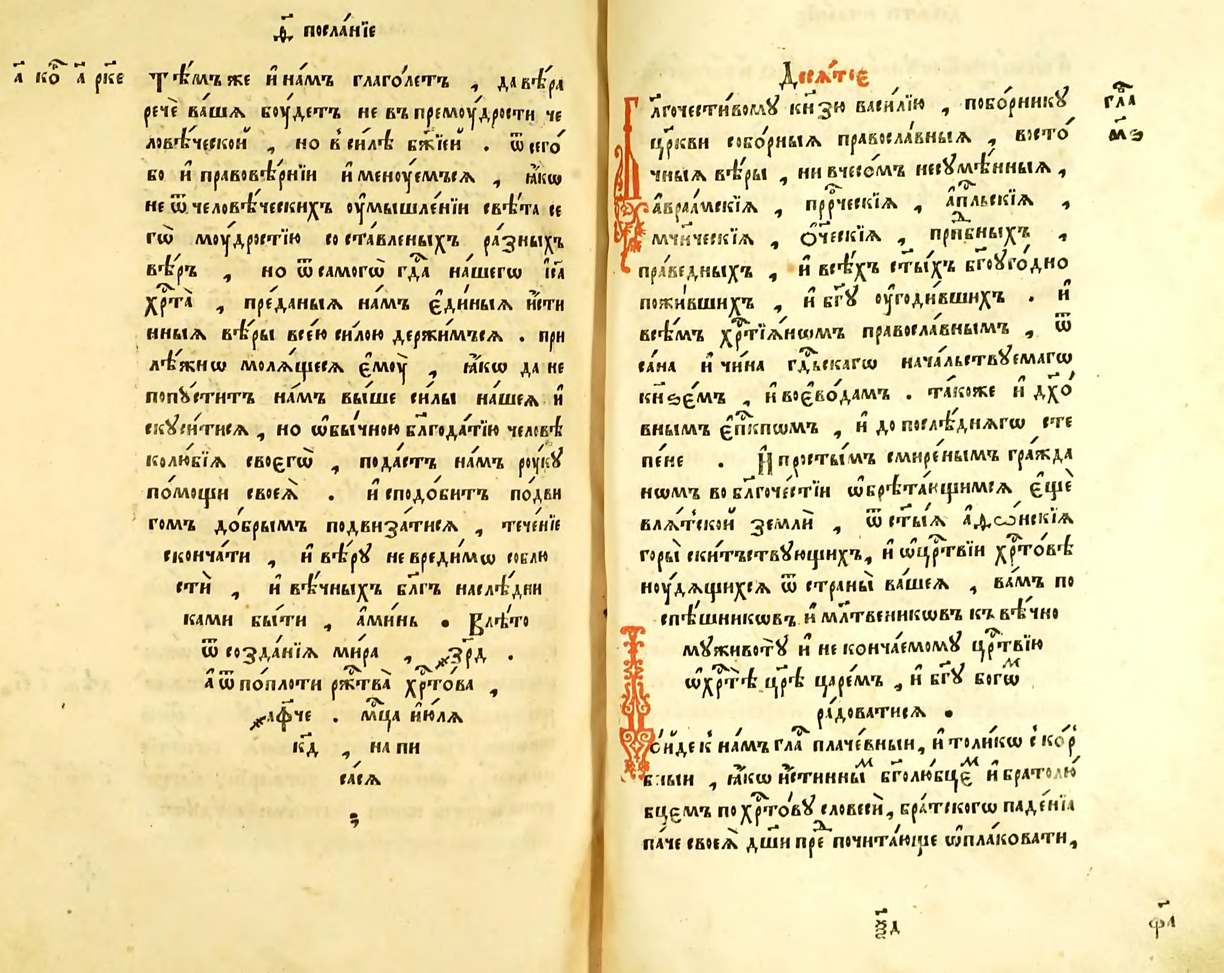 ѳ҃ посла́нїе
а҃ коⷬ҇ а҃ рк҃е
тѣ́мъже и҆ на́мъ глаго́летъ , да вѣ́ра
речѐ ва́шѧ бꙋ́детъ не въ премꙋ́дрости че
ловѣ́ческой , но в̾ си́лѣ бж҃їей . ѿ сего́
бо и҆ правовѣ́рнїи и҆менꙋ́емъсѧ , ꙗ҆́кѡ
не ѿ человѣ́ческихъ ᲂу҆мышле́нїи свѣ́та се
гѡ̀ мꙋ́дростїю соста́вленыхъ ра́зныхъ
вѣ́ръ , но ѿ самогѡ̀ гдⷭ҇а на́шегѡ і҆с҃а
хрⷭ҇та̀ , пре́даныѧ на́мъ є҆ди́ныѧ и҆́сти
нныѧ вѣ́ры все́ю си́лою держи́мъсѧ . при
лѣ́жнѡ молѧ́щесѧ є҆мꙋ̀ , ꙗ҆́кѡ да не
попꙋ́ститъ на́мъ вы́ше си́лы на́шеѧ и҆
скꙋси́тисѧ , но ѡ҆бы́чною бл҃года́тїю человѣ
колю́бїѧ своегѡ̀ , пода́стъ на́мъ рꙋ́кꙋ
по́мощи своеѧ̀ . и҆ сподо́битъ по́дви
гомъ до́брымъ подвиза́тисѧ , тече́нїе
сконча́ти , и҆ вѣ́рꙋ невреди́мѡ соблю
стѝ , и҆ вѣ́чныхъ бл҃гъ наслѣ́дни
ками бы́ти , а҆ми́нь . В̾лѣ́то
ѿ созда́нїѧ ми́ра , ҂зр҃д .
а҆ ѿ по́плоти ржⷭ҇тва̀ хрⷭ҇то́ва ,
҂аф҃че . мцⷭ҇а и҆ю́лѧ
к҃д , напи
са́сѧ
Десѧ́тое
Бл҃гочести́вомꙋ кн҃зю васи́лїю , побо́рникꙋ
цр҃кви собо́рныѧ правосла́вныѧ , восто́
чныѧ вѣ́ры , нивчесо́мъ несꙋмѣ́нныѧ ,
а҆враа́мскїѧ , прⷪ҇ро́ческїѧ , а҆пⷭ҇льскїѧ ,
мч҃нческїѧ , ѻ҆ч҃ескїѧ , прпⷣбныхъ ,
пра́ведныхъ , и҆ всѣ́хъ ст҃ы́хъ бг҃оꙋго́дно
пожи́вшихъ , и҆ бг҃ꙋ ᲂу҆годи́вшихъ . и҆
всѣ́мъ хрⷭ҇тїѧ́нѡмъ правосла́внымъ , ѿ
са́на и҆ чи́на гдⷭ҇ьскагѡ нача́льствꙋемагѡ
кнѕе́мъ , и҆ воево́дам . та́коже и҆ дх҃о́
внымъ є҆пⷭ҇кпѡмъ , и҆ до послѣ́днѧгѡ сте
пе́не . И҆ просты́мъ смире́нымъ гра́жда
нѡмъ во бл҃гоче́стїи ѡ҆брѣта́ющимсѧ є҆щѐ
влѧ́тской землѝ , ѿ ст҃ы́ѧ а҆ѳѡ́нскїѧ
горы̀ скитъствꙋ́ющихъ, и҆ ѡ҆црⷭ҇твїи хрⷭ҇то́вѣ
нꙋ́дѧщихсѧ ѿ страны̀ ва́шеѧ , ва́мъ по
спѣ́шникѡвъ и҆ мл҃твеникѡвъ къ вѣ́чно
мꙋ животꙋ̀ и҆ не конча́емомꙋ црⷭ҇твїю
ѡ҆ хрⷭ҇тѣ̀ цр҃ѣ царе́мъ , и҆ бг҃ꙋ богѡⷨ
ра́доватисѧ .
гла
м҃э
До́йде к̾ на́мъ гла́ плаче́вныи, и҆ толи́кѡ ско́р
бныи , ꙗ҆́кѡ и҆́стинныⷨ бг҃олю́бцеⷨ и҆ братолю́
бцемъ по хрⷭ҇то́вꙋ словесѝ, бра́тскогѡ паде́нїа
па́че своеѧ̀ дш҃и преⷣпочита́юще ѡ҆пла́ковати,